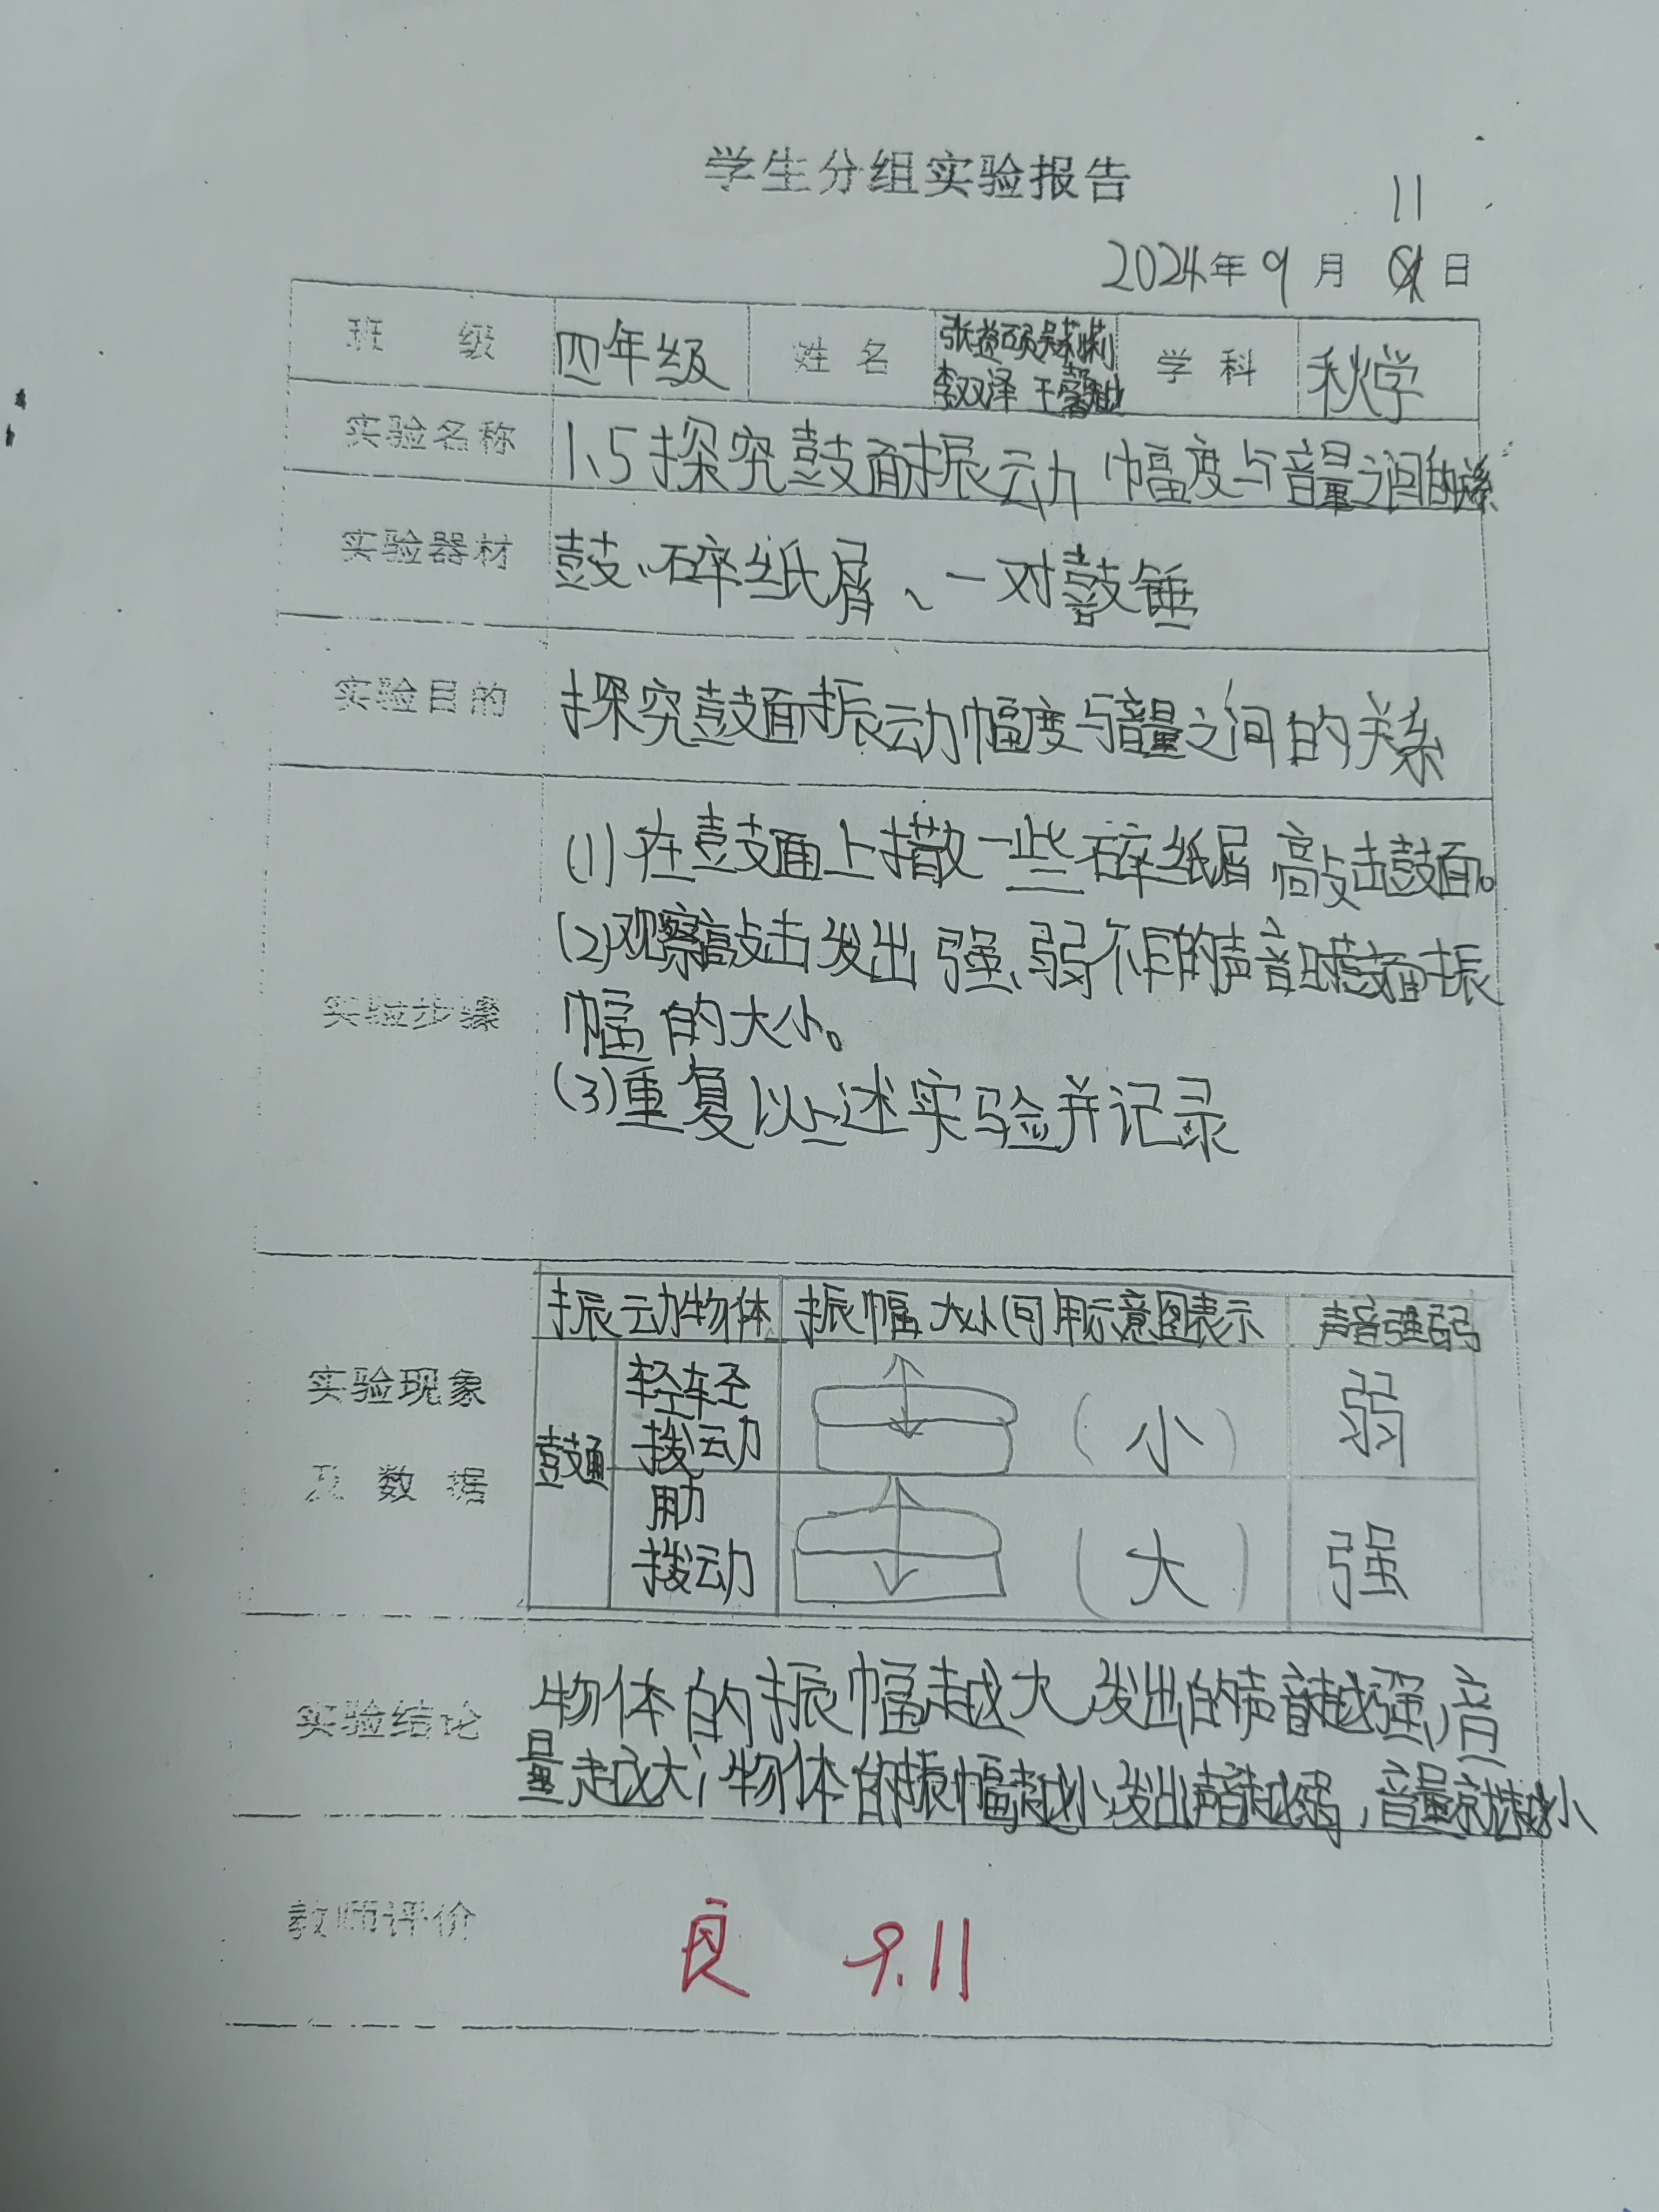 学生分组实验报告
11
2024年9月日
班 级 四年级 姓 名 学 科 科学
李双泽 王
实验名称 1、5探究鼓面振动幅度与音量之间的关系
实验器材 鼓、碎纸屑、一对鼓锤
实验目的 探究鼓面振动幅度与音量之间的关系
(1)在鼓面上撒一些碎纸屑 敲击鼓面。
(2)观察敲击发出强、弱不同的声音时鼓面振
实验步骤 幅的大小。
(3)重复以上述实验并记录
振动物体 振幅大小(可用示意图表示 声音强弱
实验现象
及 数 据
鼓面
轻轻
拨动 (小) 弱
用力
拨动 (大) 强
实验结论 物体的振幅越大,发出的声音越强,音
量越大;物体的振幅越小,发出声音越弱,音量就越小
教师评价 良 9.11